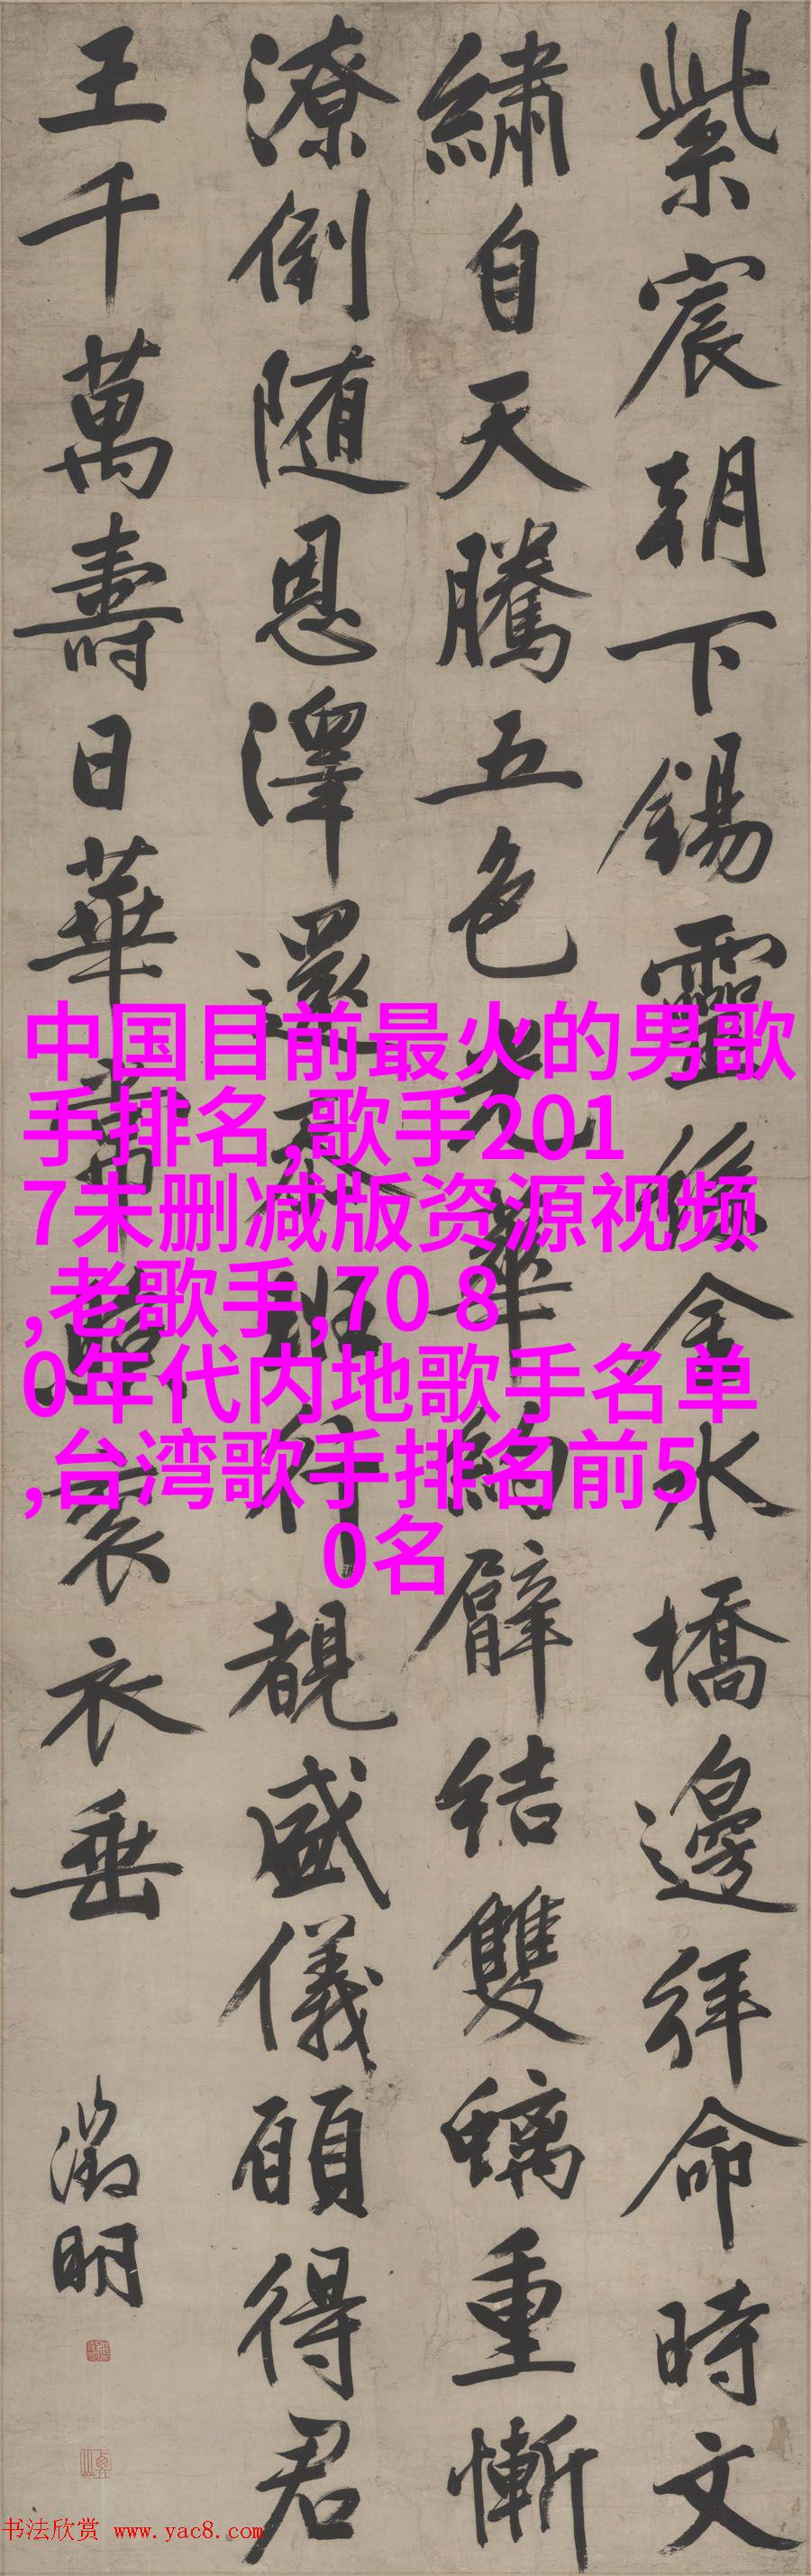 紫宸朝下錫靈絲金水橋邊拜命時文
繡自天騰五色光華約臂結雙螭重慚
潦倒随恩澤還忝班行覩盛儀願得君
王千萬壽日華常照袞衣垂
徵明
中国目前最火的男歌
手排名,歌手201
7未删减版资源视频
,老歌手,70 8
0年代内地歌手名单
,台湾歌手排名前5
0名
书法欣赏 www.yac8.com